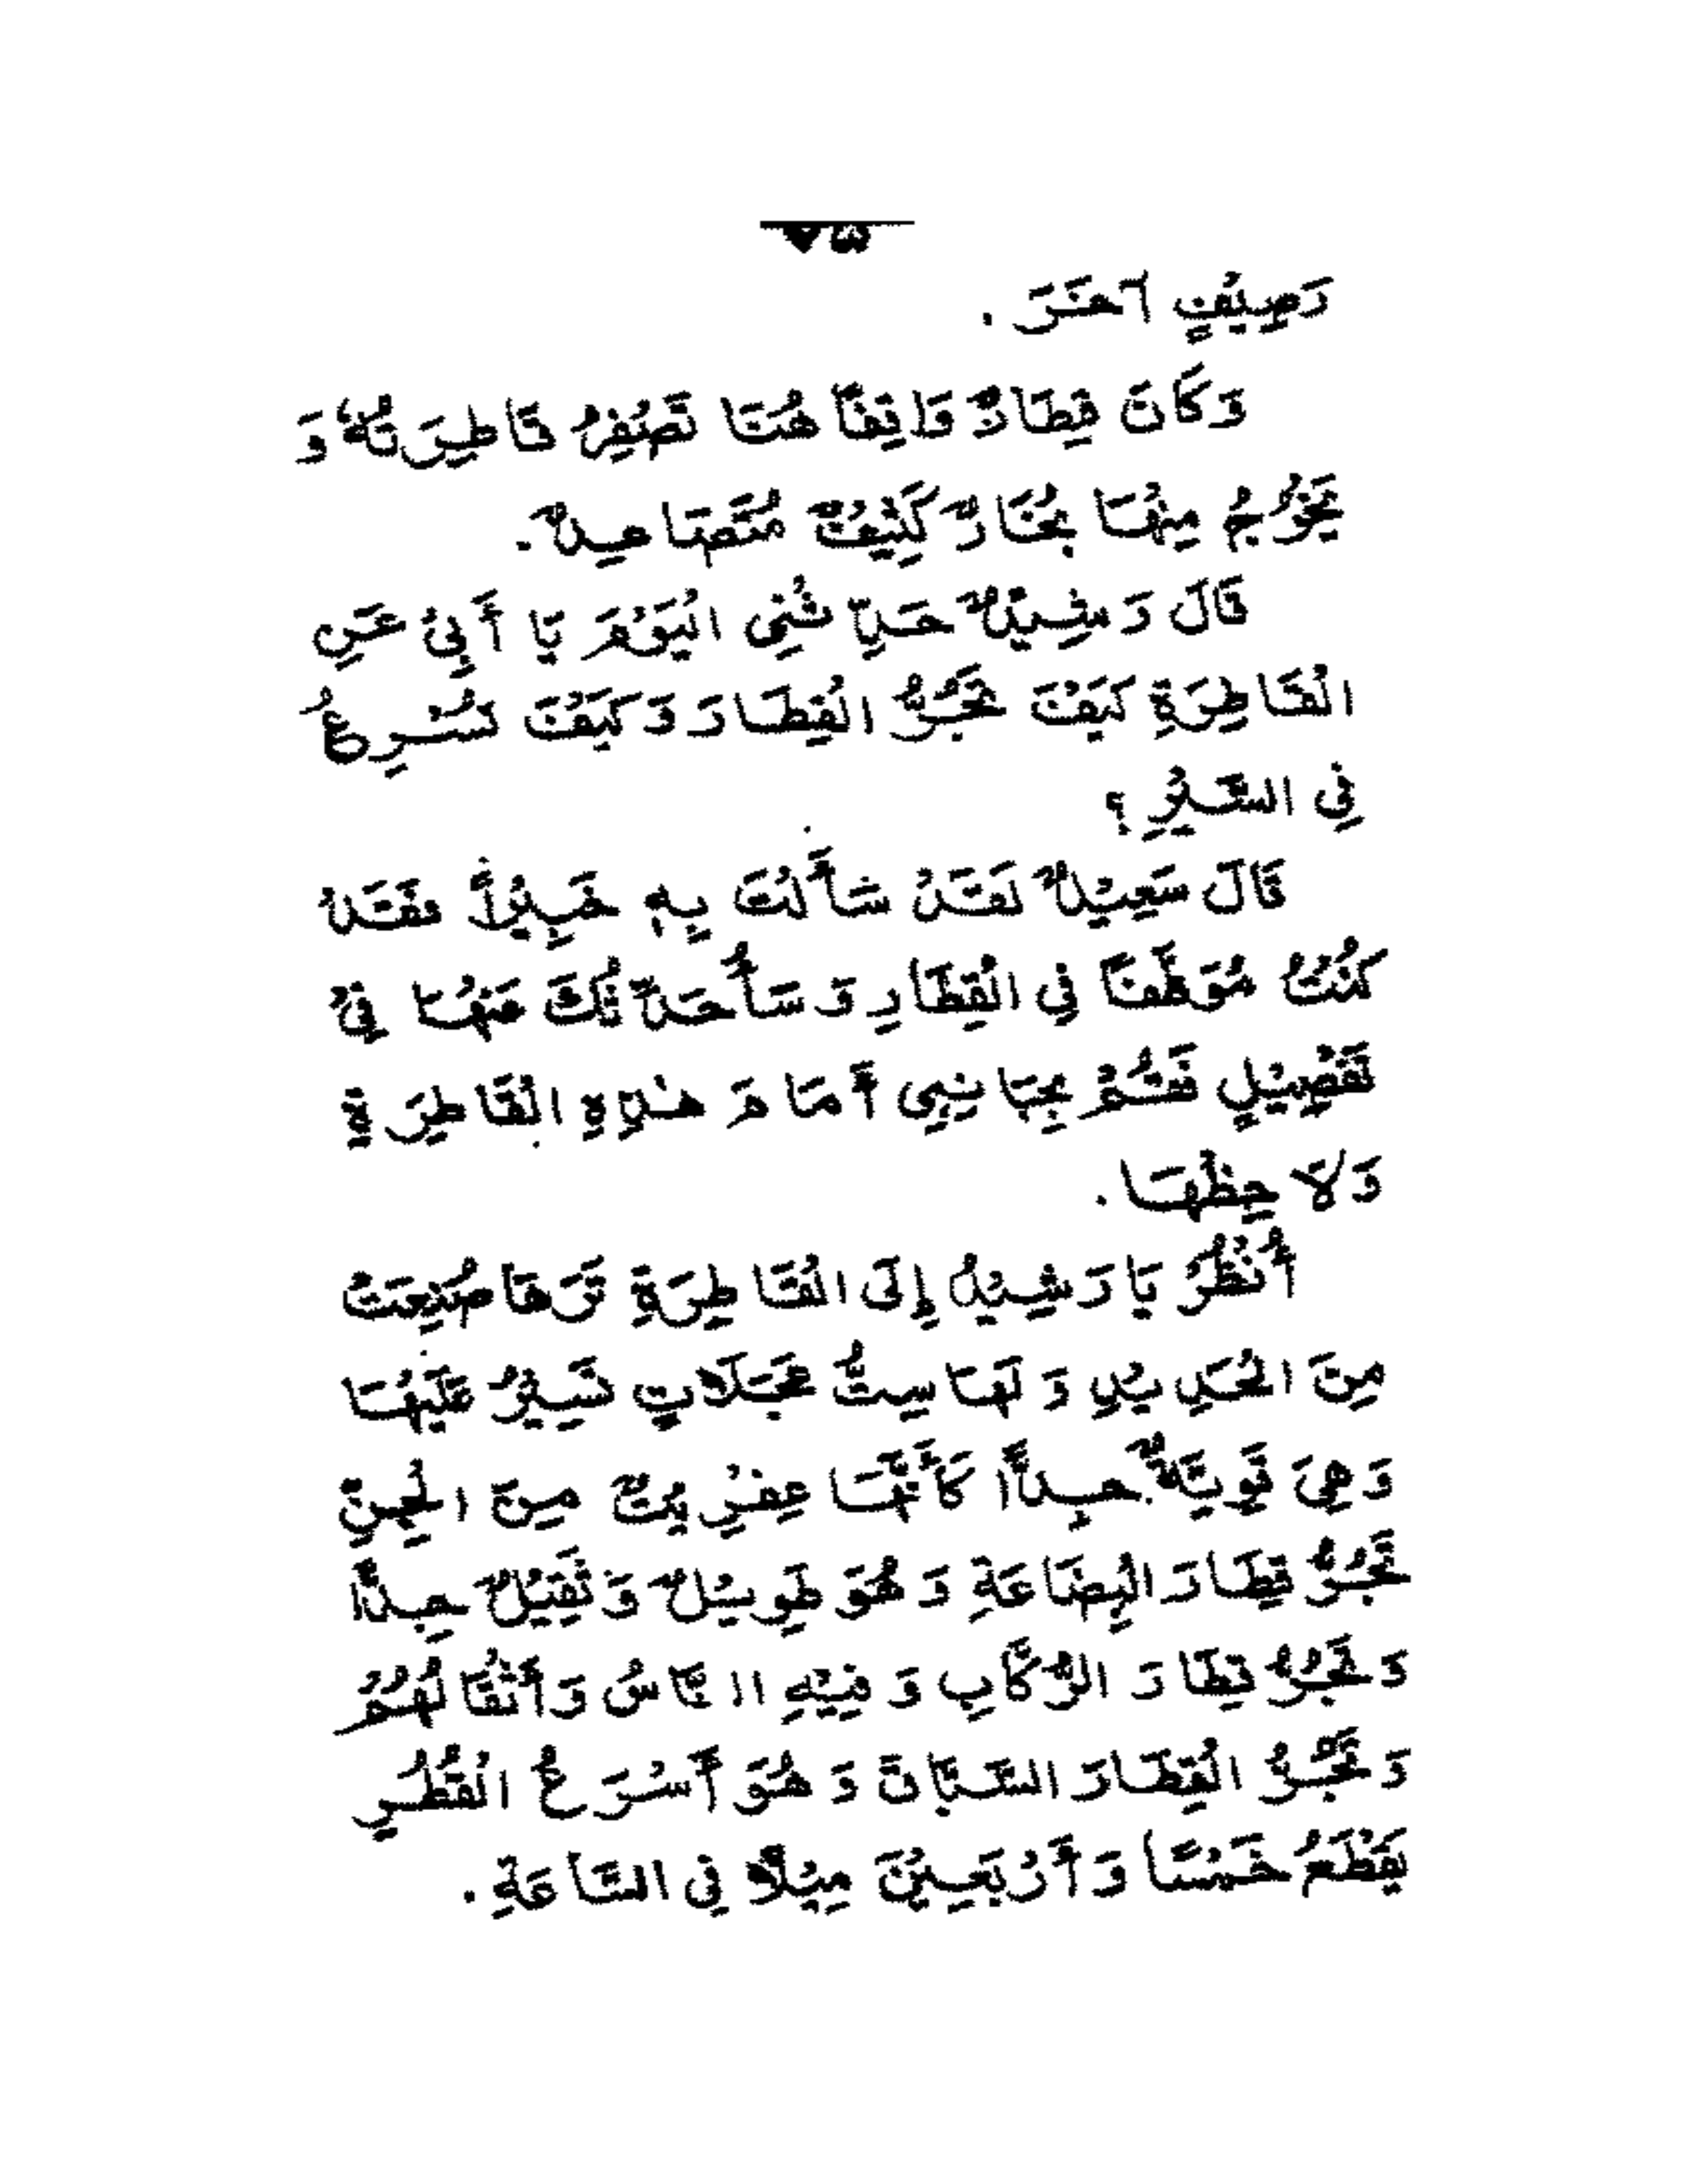 رَصِيْفٍ آخَرَ .
وَكَانَ قِطَارٌ وَاقِفًا هُنَا تَصْفِرُ قَاطِرَتُهُ وَ
يَخْرُجُ مِنْهَا بُخَارٌ كَثِيْفٌ مُتَصَاعِدٌ .
قَالَ رَشِيْدٌ حَدِّثْنِي الْيَوْمَ يَا أَبِيْ عَنِ
الْقَاطِرَةِ كَيْفَ تَجُرُّ الْقِطَارَ وَكَيْفَ تُسْرِعُ
فِي السَّيْرِ ؟
قَالَ سَعِيْدٌ لَقَدْ سَأَلْتَ بِهِ خَبِيْرًا فَقَدْ
كُنْتُ مُوَظَّفًا فِي الْقِطَارِ وَسَأُحَدِّثُكَ عَنْهَا فِيْ
تَفْصِيْلٍ فَقُمْ بِجَانِبِي أَمَامَ هٰذِهِ الْقَاطِرَةِ
وَلَاحِظْهَا .
أُنْظُرْ يَا رَشِيْدُ إِلَى الْقَاطِرَةِ تَرَهَا صُنِعَتْ
مِنَ الْحَدِيْدِ وَلَهَا سِتُّ عَجَلَاتٍ تَسِيْرُ عَلَيْهَا
وَهِيَ قَوِيَّةٌ جِدًّا كَأَنَّهَا عِفْرِيْتٌ مِنَ الْجِنِّ
تَجُرُّ قِطَارَ الْبِضَاعَةِ وَهُوَ طَوِيْلٌ وَثَقِيْلٌ جِدًّا
وَتَجُرُّ قِطَارَ الرُّكَّابِ وَفِيْهِ النَّاسُ وَأَثْقَالُهُمْ
وَتَجُرُّ الْقِطَارَ السَّبَّاقَ وَهُوَ أَسْرَعُ الْقُطُرِ
يَقْطَعُ خَمْسًا وَأَرْبَعِيْنَ مِيْلًا فِي السَّاعَةِ .